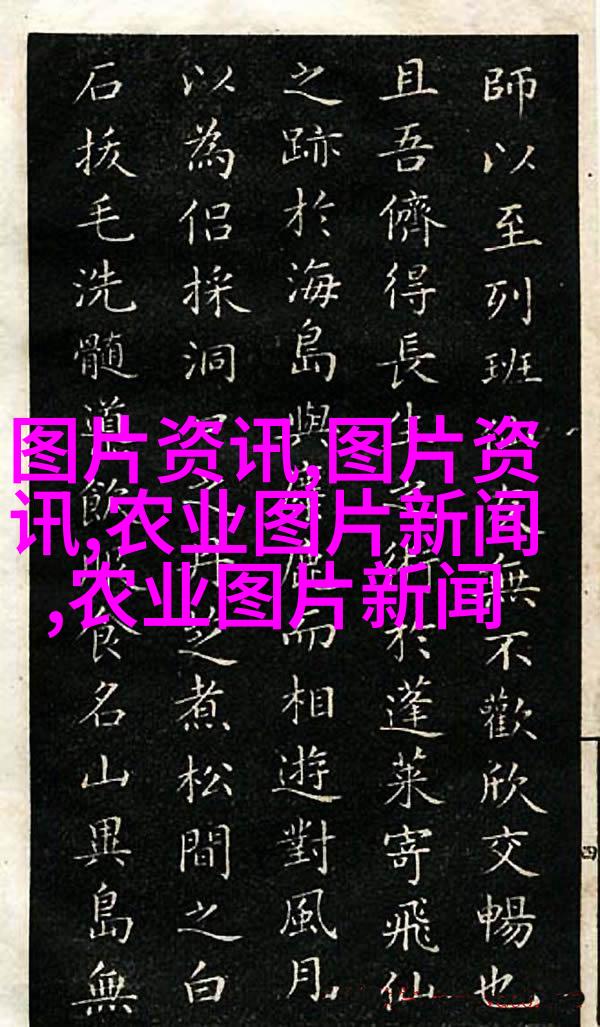 師以至列班無不歡欣交暢也
且吾儕得長生之術於蓬萊寄飛仙
之跡於海島與麋鹿而相遊對風月
以為侶採洞口之丹芝煮松間之白
石拔毛洗髓道飲服食名山異島無
图片资讯,图片资
讯,农业图片新闻
,农业图片新闻
四